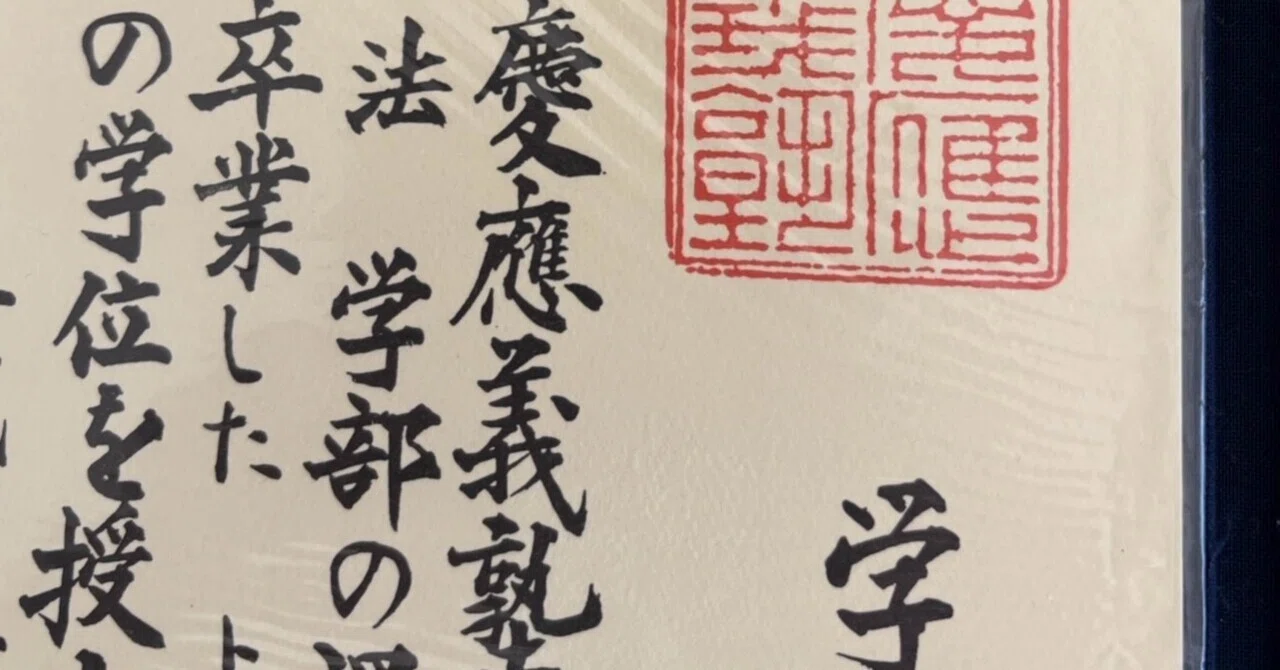 学
慶應義塾
法学部の
卒業した
の学位を授